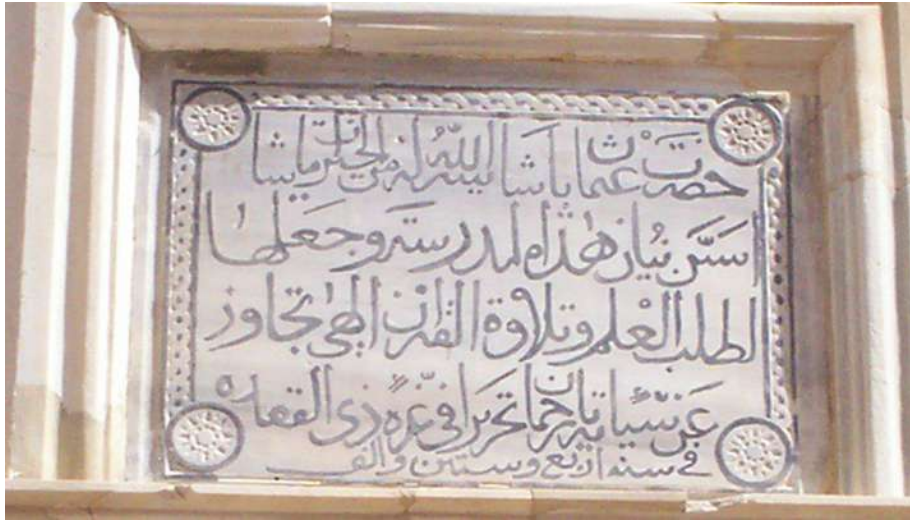 حضرت عثمان باشا اناله الله من الخيرات ما شا
اسس بنيان هذه المدرسة وجعلها
لطلب العلم وتلاوة القران الهي تجاوز
عن سيئاته يا رحمان تحريرا في غرة ذي القعده
في سنة اربع وستين والف